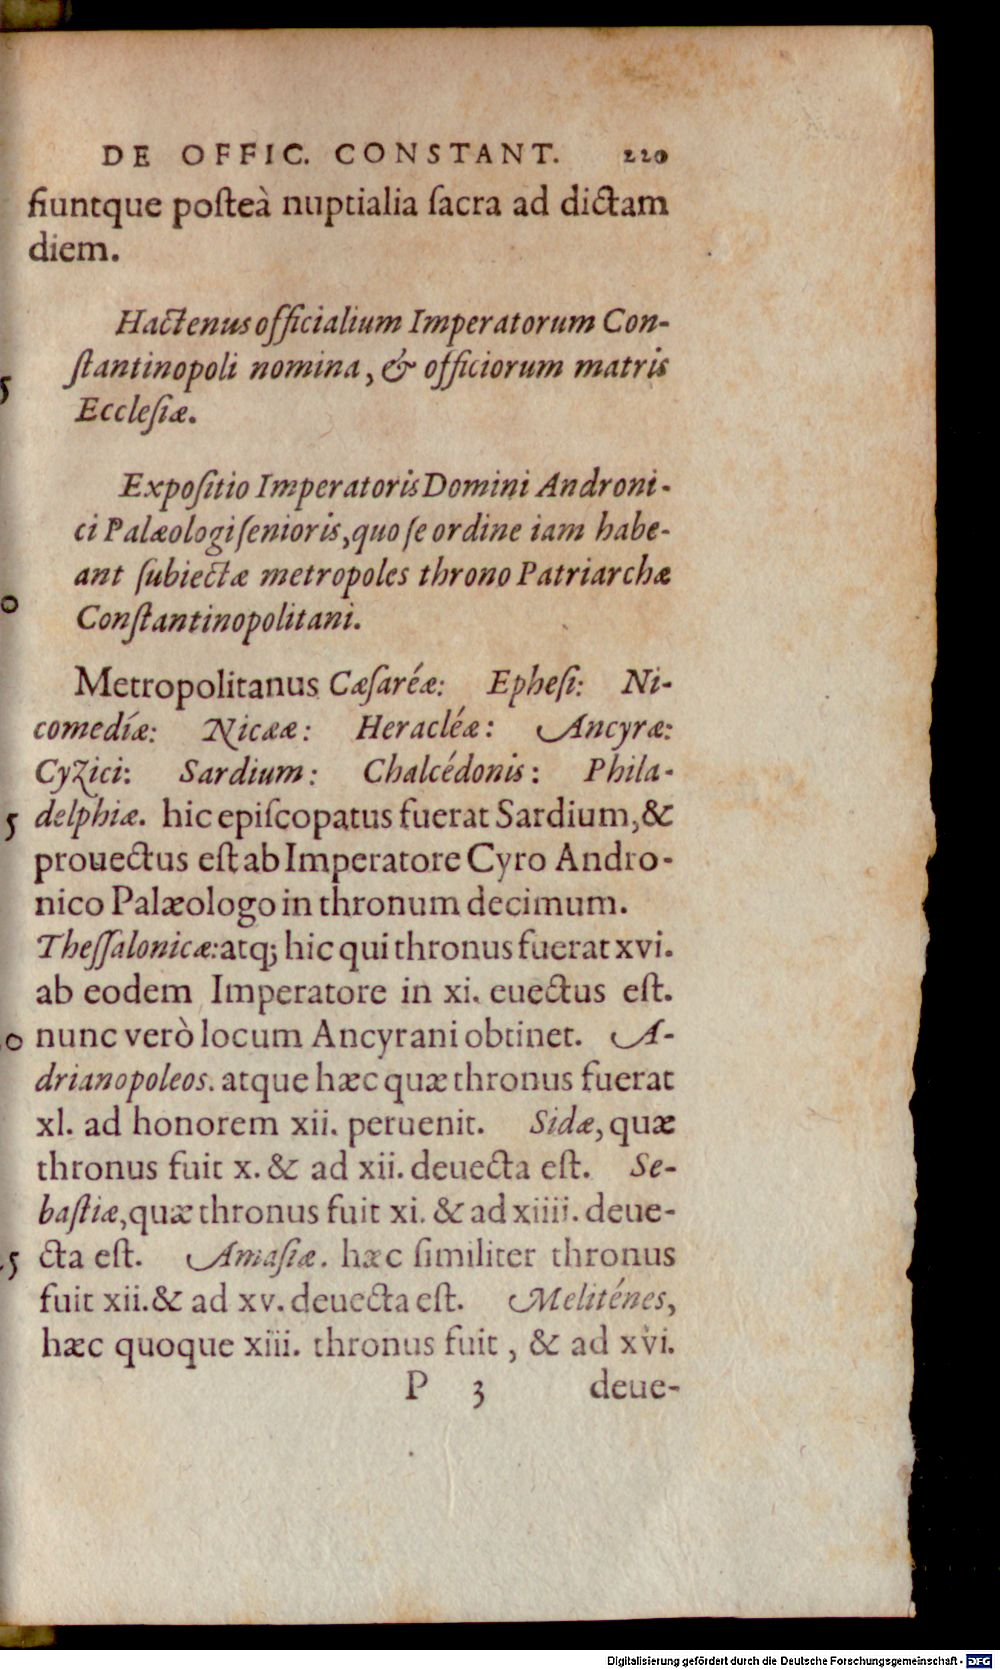 DE OFFIC. CONSTANT. 220
fiuntque poſteà nuptialia ſacra ad dictam
diem.
Hactenus officialium Imperatorum Con-
ſtantinopoli nomina, & officiorum matris
5
Eccleſiæ.
Expoſitio Imperatoris Domini Androni-
ci Palæologi ſenioris, quo ſe ordine iam habe-
ant ſubiectæ metropoles throno Patriarchæ
0
Conſtantinopolitani.
Metropolitanus Cæſaréæ: Epheſi: Ni-
comedíæ: Nicææ: Heracléæ: Ancyræ:
Cyzici: Sardium: Chalcédonis: Phila-
5 delphiæ. hic epiſcopatus fuerat Sardium, &
prouectus eſt ab Imperatore Cyro Andro-
nico Palæologo in thronum decimum.
Theſſalonicæ: atq; hic qui thronus fuerat xvi.
ab eodem Imperatore in xi. euectus eſt.
0 nunc verò locum Ancyrani obtinet. A-
drianopoleos. atque hæc quæ thronus fuerat
xl. ad honorem xii. peruenit. Sidæ, quæ
thronus fuit x. & ad xii. deuecta eſt. Se-
baſtiæ, quæ thronus fuit xi. & ad xiiii. deue-
5 cta eſt. Amaſiæ. hæc ſimiliter thronus
fuit xii. & ad xv. deuecta eſt. Meliténes,
hæc quoque xiii. thronus fuit, & ad xvi.
P 3 deue-
Digitalisierung gefördert durch die Deutsche Forschungsgemeinschaft - DFG